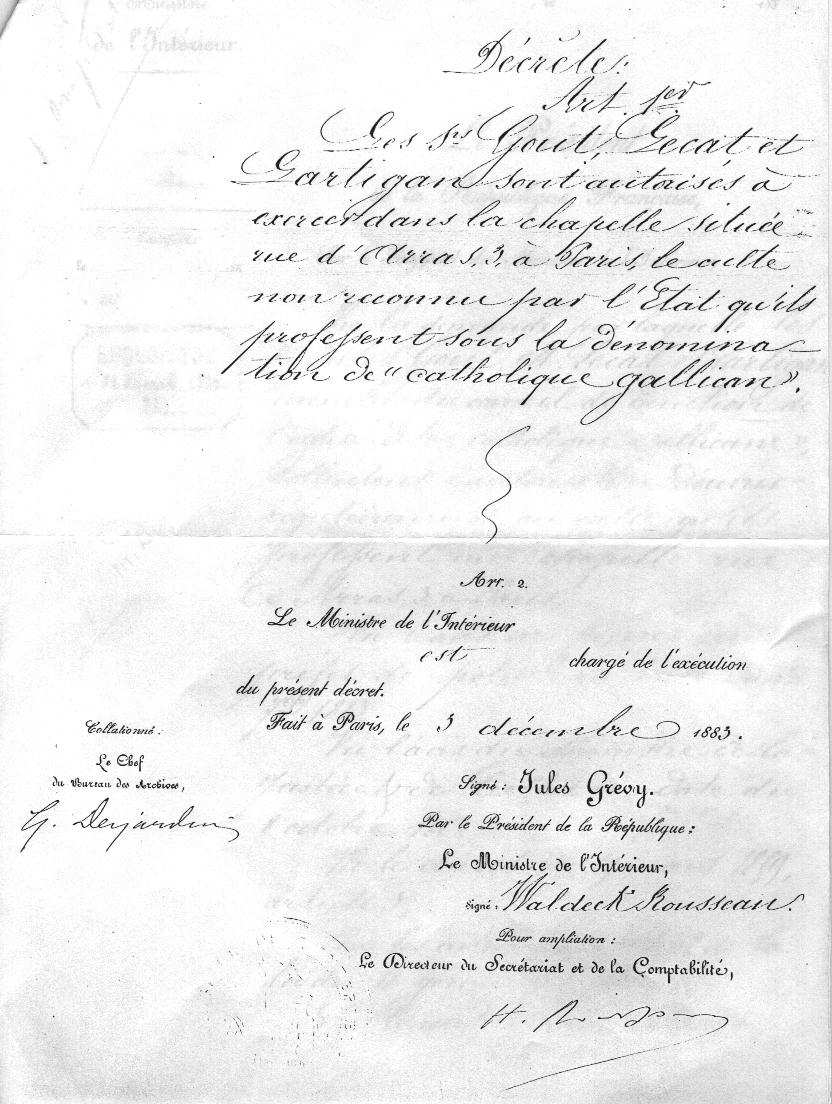 de l'Intérieur.
Décrète:
Art. 1er
Les Srs Gout, Lecat et
Lartigan sont autorisés à
exercer dans la chapelle située
rue d'Arras, 3, à Paris, le culte
non reconnu par l'Etat qu'ils
professent sous la denomina-
tion de "catholique gallican".
Art. 2.
Le Ministre de l'Intérieur
est chargé de l'exécution
du présent décret.
Fait à Paris, le 3 décembre 1883.
Collationné:
Le Chef
du Bureau des Archives,
G. Desjardins
Signé: Jules Grévy.
Par le Président de la République:
Le Ministre de l'Intérieur,
signé: Waldeck Rousseau.
Pour ampliation:
Le Directeur du Secrétariat et de la Comptabilité,
H.